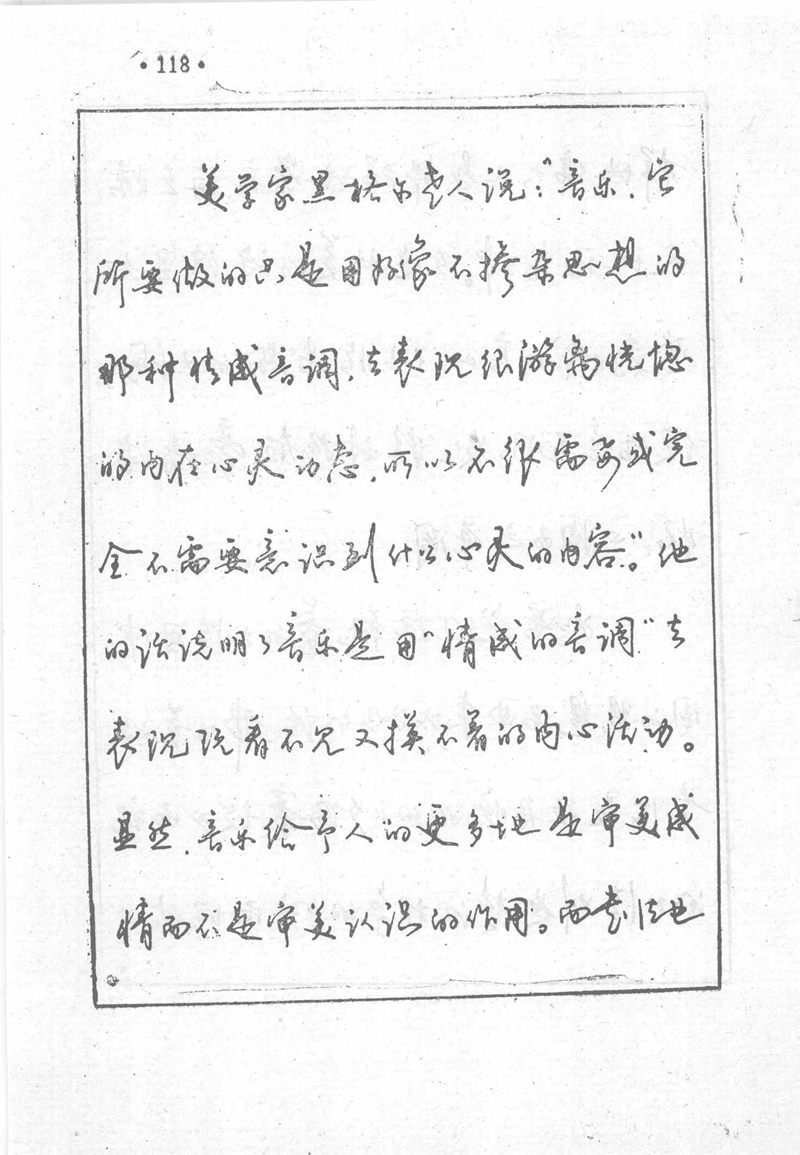 ·118·
美学家黑格尔老人说:“音乐,它
所要做的只是用好像不掺杂思想的
那种情感音调,去表现很游离恍惚
的内在心灵动态,所以不很需要或完
全不需要意识到什么心灵的内容”。他
的话说明了音乐是用“情感的音调”去
表现既看不见又摸不着的内心活动。
显然,音乐给予人的更多地是审美感
情而不是审美认识的作用。而书法也